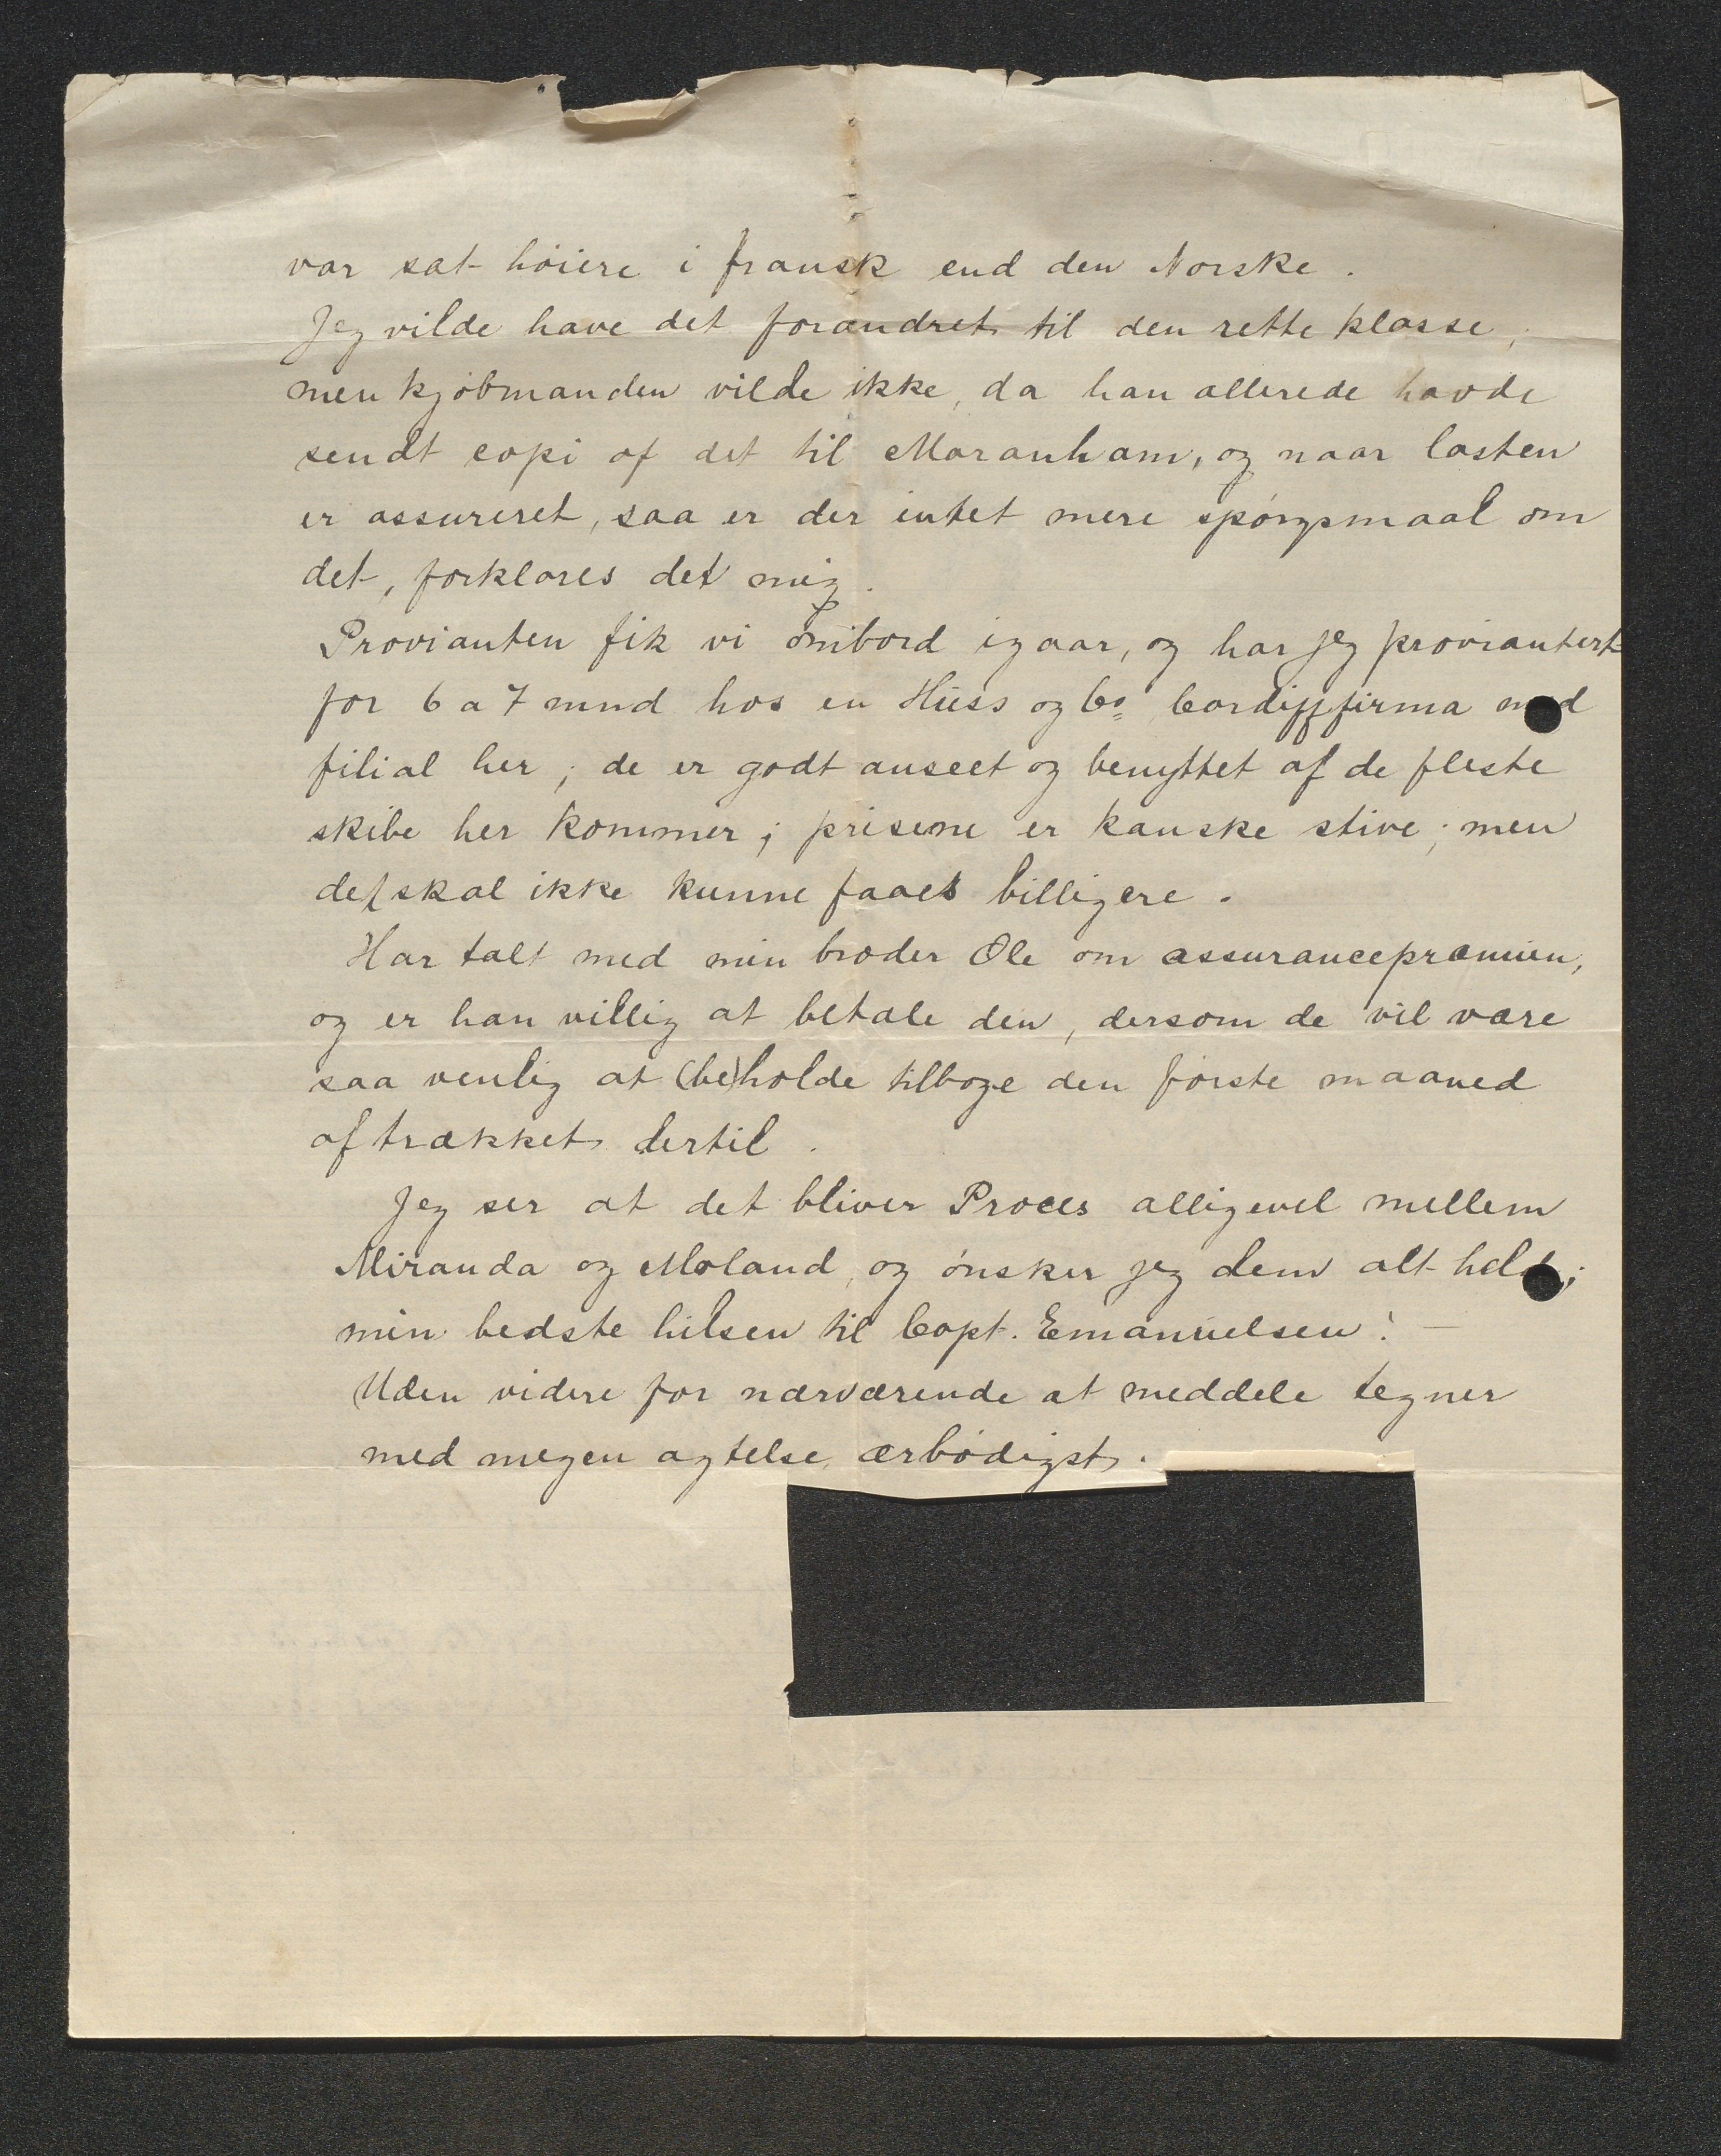 var sat höiere i fransk end den Norske.
Jeg vilde have det forandret til den rette klasse,
men kjøbmanden vilde ikke, da han allerede havde
sendt copi af det til Maranham, og naar lasten
er assureret, saa er der intet mere spørgsmaal om
det, forklares det mig.
Provianten fik vi ombord igaar, og har jeg proviantert
for 6 a 7 mnd hos en Huss og Co Cardiffirma med
filial her; de er godt anseet og benyttet af de fleste
skibe her kommer; prisene er kanske stive; men
det skal ikke kunne faaes billigere.
Har talt med min broder Ole om assurancepræmien,
og er han villig at betale den, dersom de vil være
saa venlig at (be)holde tilbage den første maaned
aftrækket dertil.
Jeg ser at det bliver Proces alligevel mellem
Miranda og Moland, og ønsker jeg dem alt held;
min bedste hilsen til Capt. Emanuelsen! —
Uden videre for nærværende at meddele tegner
med megen agtelse, ærbødigst.